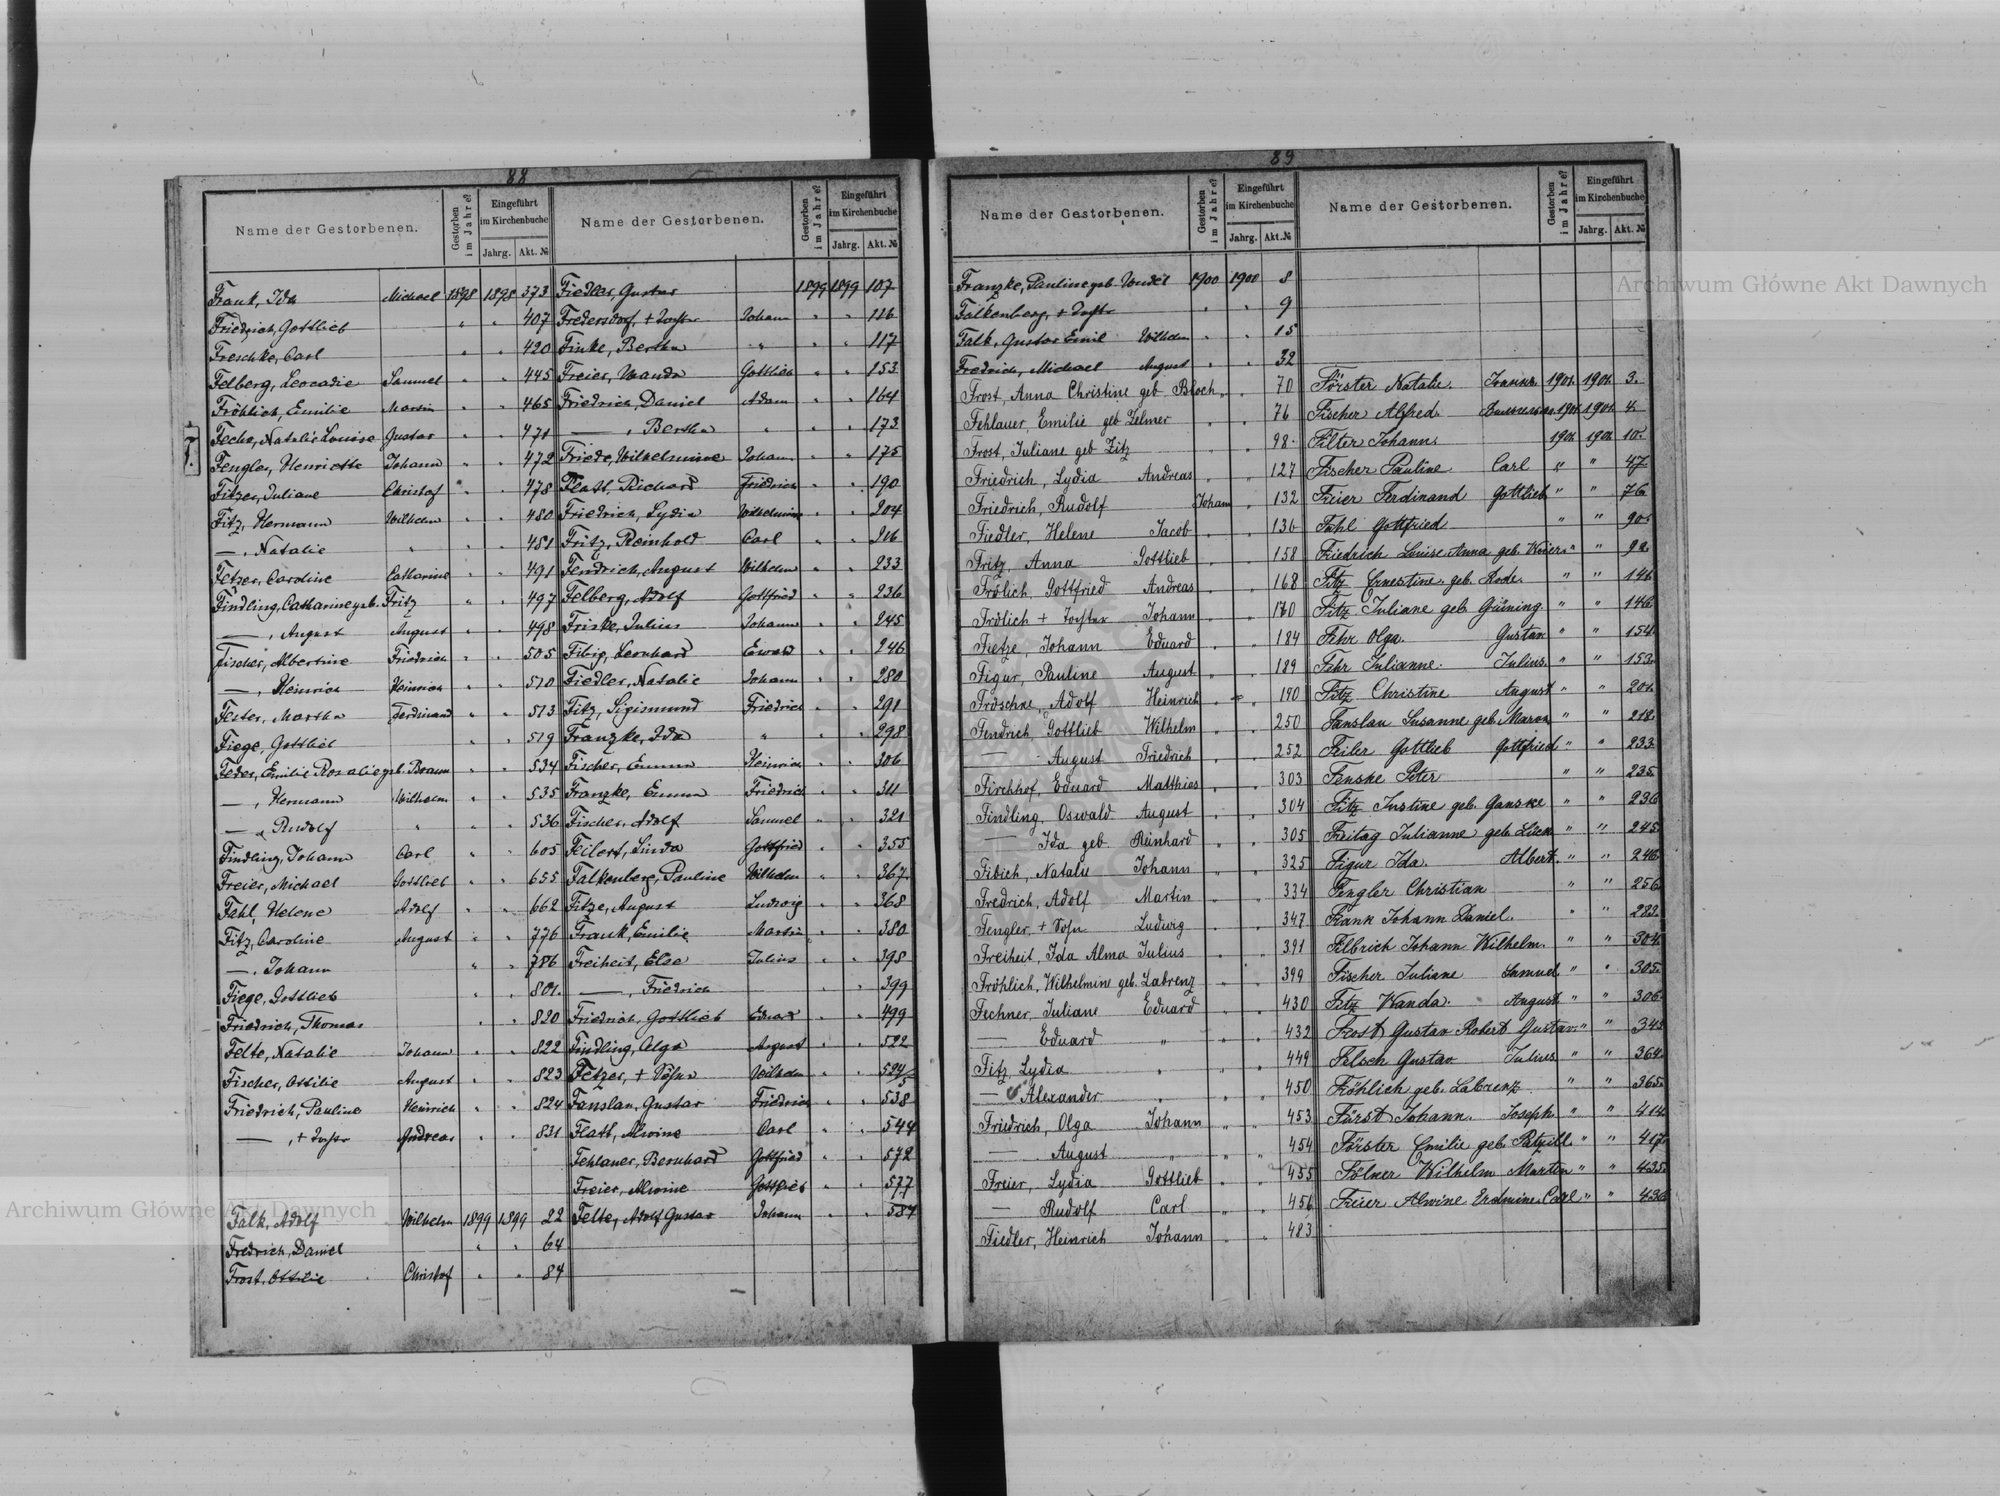 88
Name der Gestorbenen. Gestorben im Jahre? Eingeführt im Kirchenbuche Jahrg. Akt. №
Frank, Ida Michael 1898 1898 373
Friedrich, Gottlieb " " 407
Freschke, Carl " " 420
Felberg, Leocadie Samuel " " 445
Fröhlich, Emilie Martin " " 465
Fechn, Natalie Louise Gustav " " 471
Fengler, Henriette Johann " " 472
Fitzer, Juliane Christof " " 478
Fitz, Hermann Wilhelm " " 480
—, Natalie " " " 481
Fetzer, Caroline Catharine " " 491
Findling, Catharine geb. Fritz " " 497
—, August August " " 498
Fischer, Albertine Friedrich " " 505
—, Heinrich Heinrich " " 510
Fester, Martha Ferdinand " " 513
Fiege, Gottlieb " " 519
Feder, Emilie Rosalie geb. Braun " " 534
—, Hermann Wilhelm " " 535
—, Rudolf " " " 536
Findling, Johann Carl " " 605
Freier, Michael Gottlieb " " 655
Fahl, Helene Adolf " " 662
Fitz, Caroline August " " 776
—, Johann " " 786
Fiege, Gottlieb " " 801.
Friedrich, Thomas " " 820
Felte, Natalie Johann " " 822
Fischer, Ottilie August " " 823
Friedrich, Pauline Heinrich " " 824
—, + Tochter Andreas " " 831
Falk, Adolf Wilhelm 1899 1899 22
Fredrich, Daniel " " 64
Frost, Ottilie Christof " " 84
Name der Gestorbenen. Gestorben im Jahre? Eingeführt im Kirchenbuche Jahrg. Akt. №
Fiedler, Gustav 1899 1899 107
Fredersdorf, + Tochter Johann " " 116
Finke, Bertha " " " 117
Freier, Wanda Gottlieb " " 153
Friedrich, Daniel Adam " " 164
—, Bertha " " " 173
Friede, Wilhelmine Johann " " 175
Flatt, Richard Friedrich " " 190
Friedrich, Lydia Wilhelmine " " 204
Fritz, Reinhold Carl " " 216
Fendrich, August Wilhelm " " 233
Felberg, Adolf Gottfried " " 236
Friske, Julius Johann " " 245
Fibig, Leonhard Ewald " " 246
Fiedler, Natalie Johann " " 280
Fitz, Sigismund Friedrich " " 291
Franzke, Ida " " " 298
Fischer, Emma Heinrich " " 306
Franzke, Emma Friedrich " " 311
Fischer, Adolf Samuel " " 321
Feilert, Linda Gottfried " " 355
Falkenberg, Pauline Wilhelm " " 367
Fitze, August Ludwig " " 368
Frank, Emilie Martin " " 380
Freiheit, Else Julius " " 398
—, Friedrich " " 399
Friedrich, Gottlieb Eduard " " 499
Findling, Olga August " " 522
Fetzer, + Sohn Wilhelm " " 524/5
Fanslau, Gustav Friedrich " " 538
Flatt, Alwine Carl " " 544
Fehlauer, Bernhard Gottfried " " 572
Freier, Alwine Gottlieb " " 577
Felte, Adolf Gustav Johann " " 587
89
Name der Gestorbenen. Gestorben im Jahre? Eingeführt im Kirchenbuche Jahrg. Akt. №
Franzke, Pauline geb. Wudel 1900 1900 8
Falkenberg, + Tochter " " 9
Falk, Gustav Emil Wilhelm " " 15
Fredrich, Michael August " " 32
Frost, Anna Christine geb Bloch " " 70
Fehlauer, Emilie geb Zelmer " " 76
Frost, Juliane geb Zitz " " 98
Friedrich, Lydia Andreas " " 127
Friedrich, Rudolf Johann " 132
Fiedler, Helene Jacob " " 136
Fritz, Anna Gottlieb " " 158
Frölich, Gottfried Andreas " " 168
Frölich + Tochter Johann " " 170
Fietze, Johann Eduard " " 184
Figur, Pauline August " " 189
Fröschke, Adolf Heinrich " " 190
Fendrich, Gottlieb Wilhelm " " 250
— August Friedrich " " 252
Firchhof, Eduard Matthias " " 303
Findling, Oswald August " " 304
— Ida geb Reinhard " " 305
Fibich, Natalie Johann " " 325
Fredrich, Adolf Martin " " 334
Fengler, + Sohn Ludwig " " 347
Freiheit, Ida Alma Julius " " 391
Fröhlich, Wilhelmine geb. Labrenz " " 399
Fechner, Juliane Eduard " " 430
— Eduard " " " 432
Fitz, Lydia " " " 449
— Alexander " " " 450
Friedrich, Olga Johann " " 453
— August " " " 454
Freier, Lydia Gottlieb " " 455
— Rudolf Carl " " 456
Fiedler, Heinrich Johann " " 483
Name der Gestorbenen. Gestorben im Jahre? Eingeführt im Kirchenbuche Jahrg. Akt. №
Förster Natalie 1901. 1901. 3.
Fischer Alfred. 1901. 1901. 4.
Filter Johann. 1901. 1901. 10.
Fischer Pauline Carl " " 47
Freier Ferdinand Gottlieb " " 76
Fahl Gottfried " " 90.
Friedrich Luise Anna geb. " " 92.
Fitz Ernestine geb. Rode. " " 141.
Fitz Juliane geb. Grüning. " " 146
Fehr Olga. Gustav " " 154.
Fehr Julianne. Julius. " " 153.
Fitz Christine August " " 201.
Fanslau Susanne geb. Maron " " 218.
Feiler Gottlieb Gottfried " " 233.
Fenske Peter " " 235.
Fitz Justine geb. Ganske " " 236
Freitag Julianne geb. " " 245.
Figur Ida. Albert. " " 246.
Fengler Christian " " 256
Frank Johann Daniel. " " 283.
Filbrich Johann Wilhelm. " " 304.
Fischer Juliane Samuel " " 305.
Fitz Wanda. August. " " 306.
Frost Gustav Robert Gustav. " "
Felsch Gustav Julius " " 364.
Fröhlich geb. Labrenz. " " 365.
Fürst Johann. Joseph " " 414
Förster Emilie geb. Patzill. " " 417.
Fölmer Wilhelm Martin " " 435.
Freier Alwine Erdmine Carl " " 436
Archiwum Główne Akt Dawnych
Archiwum Główne Akt Dawnych